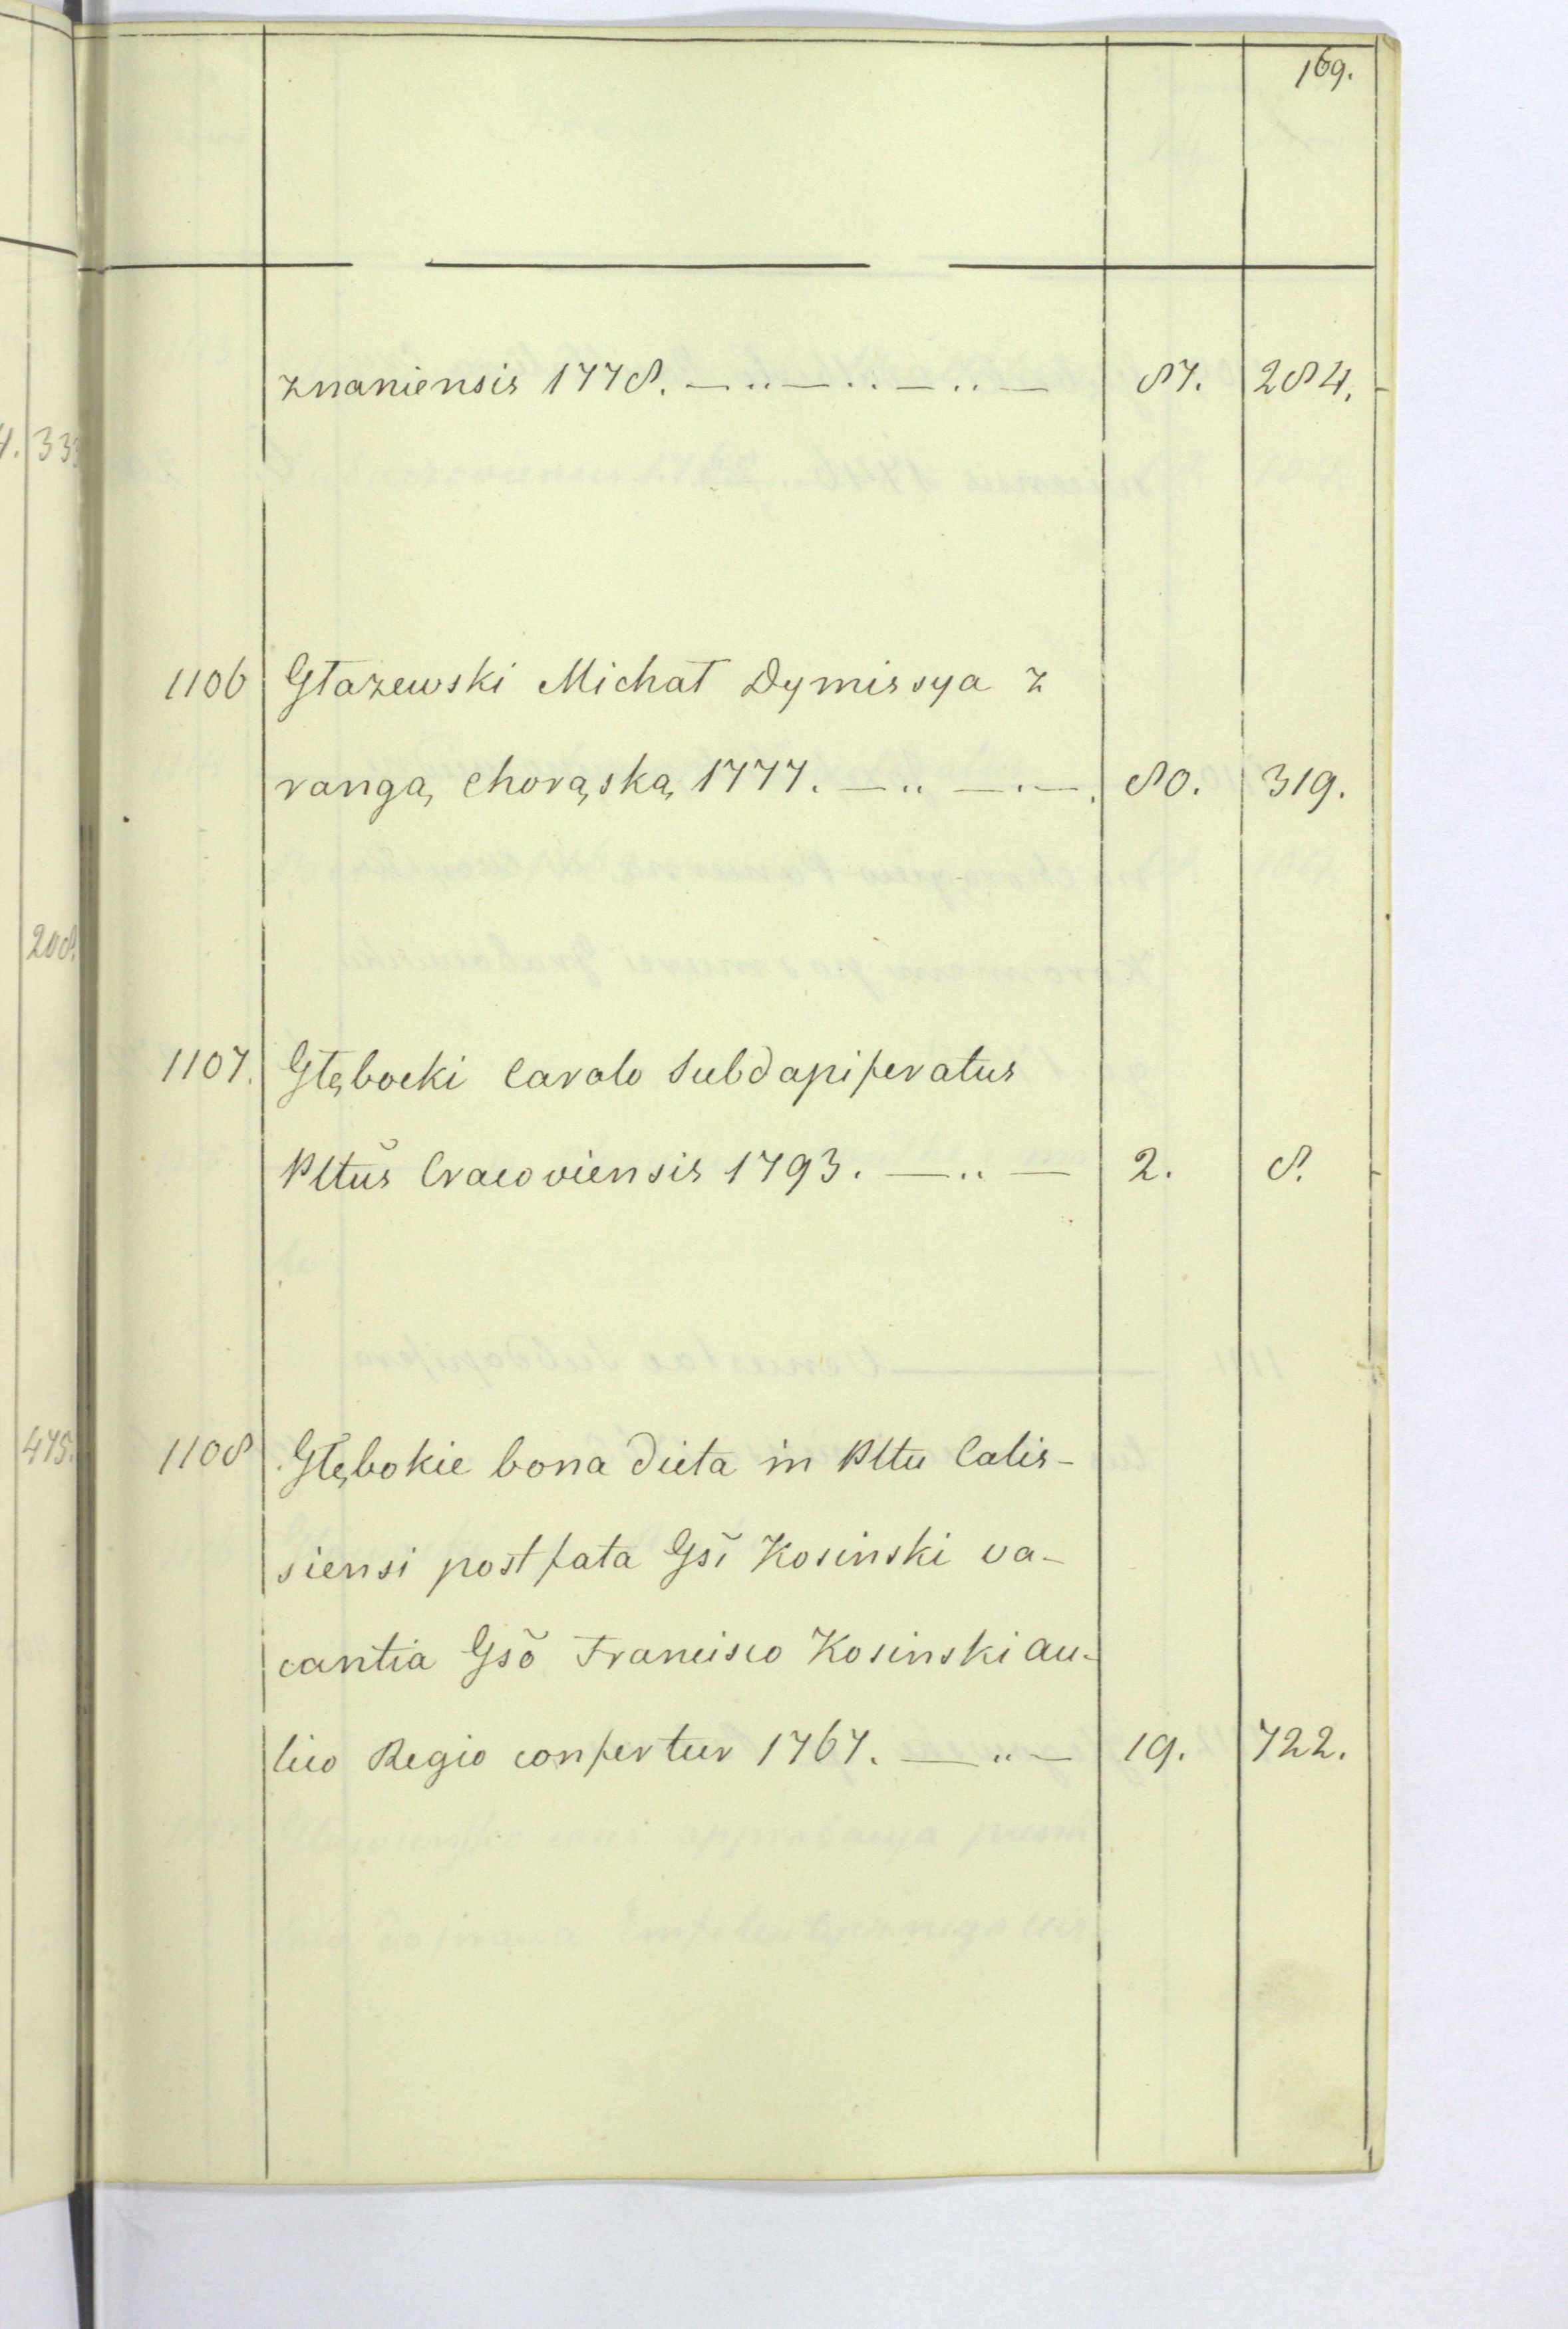 169.
znaniensis 1778. — .. — .. — .. — 87. 284.
1106 Głazewski Michał Dymissya z
rangą chorąską 1777. — .. — . — . 80. 319.
1107. Głębocki Carolo Subdapiferatus
Pltus̃ Cracoviensis 1793. — .. — 2. 8.
1108 Głębokie bona dicta in Pltu Calis-
siensi post fata Gsĩ Kosinski va-
cantia Gsõ Francisco Kosinski au-
lico Regio confertur 1767. — .. — 19. 722.
333
208.
475.